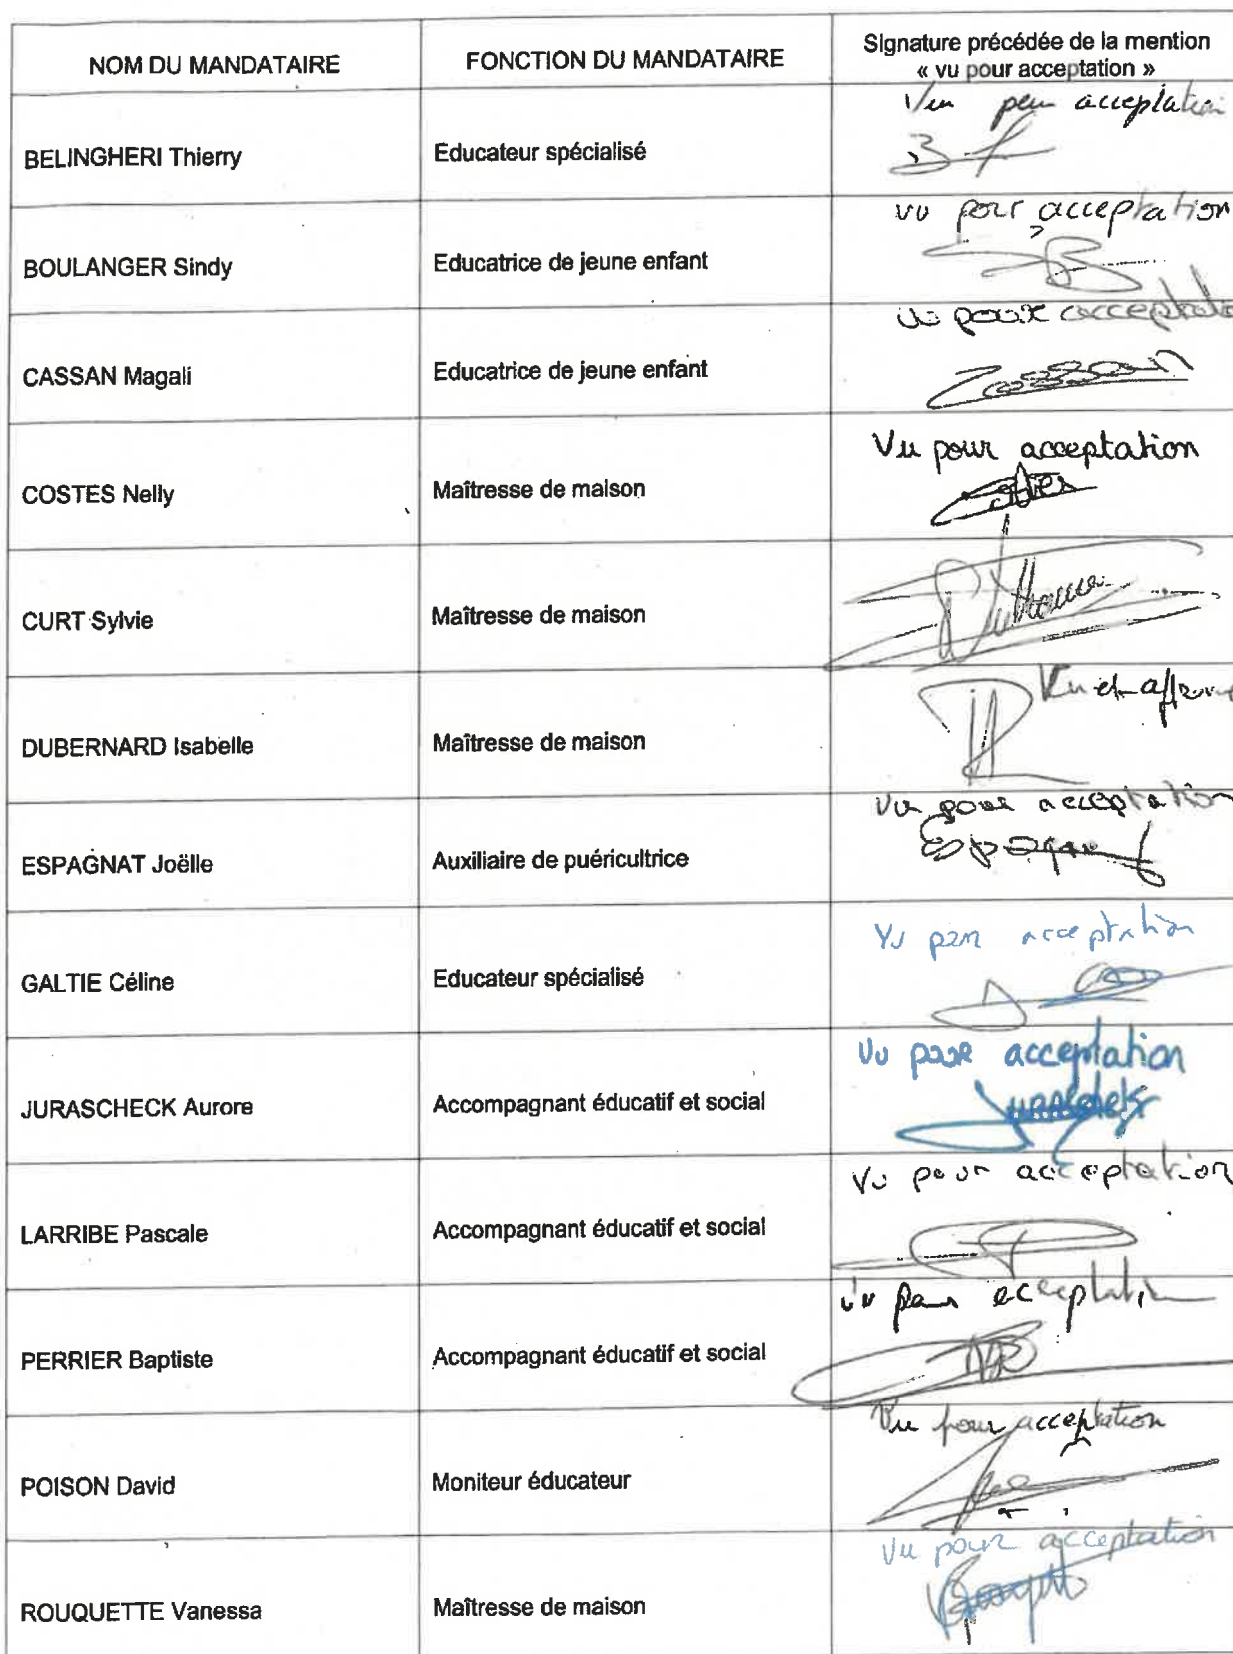 NOM DU MANDATAIRE
FONCTION DU MANDATAIRE
Signature précédée de la mention
« vu pour acceptation »
BELINGHERI Thierry
Educateur spécialisé
Vu pour acceptation
BOULANGER Sindy
Educatrice de jeune enfant
vu pour acceptation
CASSAN Magali
Educatrice de jeune enfant
vu pour acceptatio
Cassan
COSTES Nelly
Maîtresse de maison
Vu pour acceptation
CURT Sylvie
Maîtresse de maison
DUBERNARD Isabelle
Maîtresse de maison
Vu et approuv
ESPAGNAT Joëlle
Auxiliaire de puéricultrice
Vu pour acceptation
GALTIE Céline
Educateur spécialisé
Vu pour acceptation
JURASCHECK Aurore
Accompagnant éducatif et social
Vu pour acceptation
LARRIBE Pascale
Accompagnant éducatif et social
Vu pour acceptation
PERRIER Baptiste
Accompagnant éducatif et social
vu pour acceptation
POISON David
Moniteur éducateur
Vu pour acceptation
ROUQUETTE Vanessa
Maîtresse de maison
Vu pour acceptation